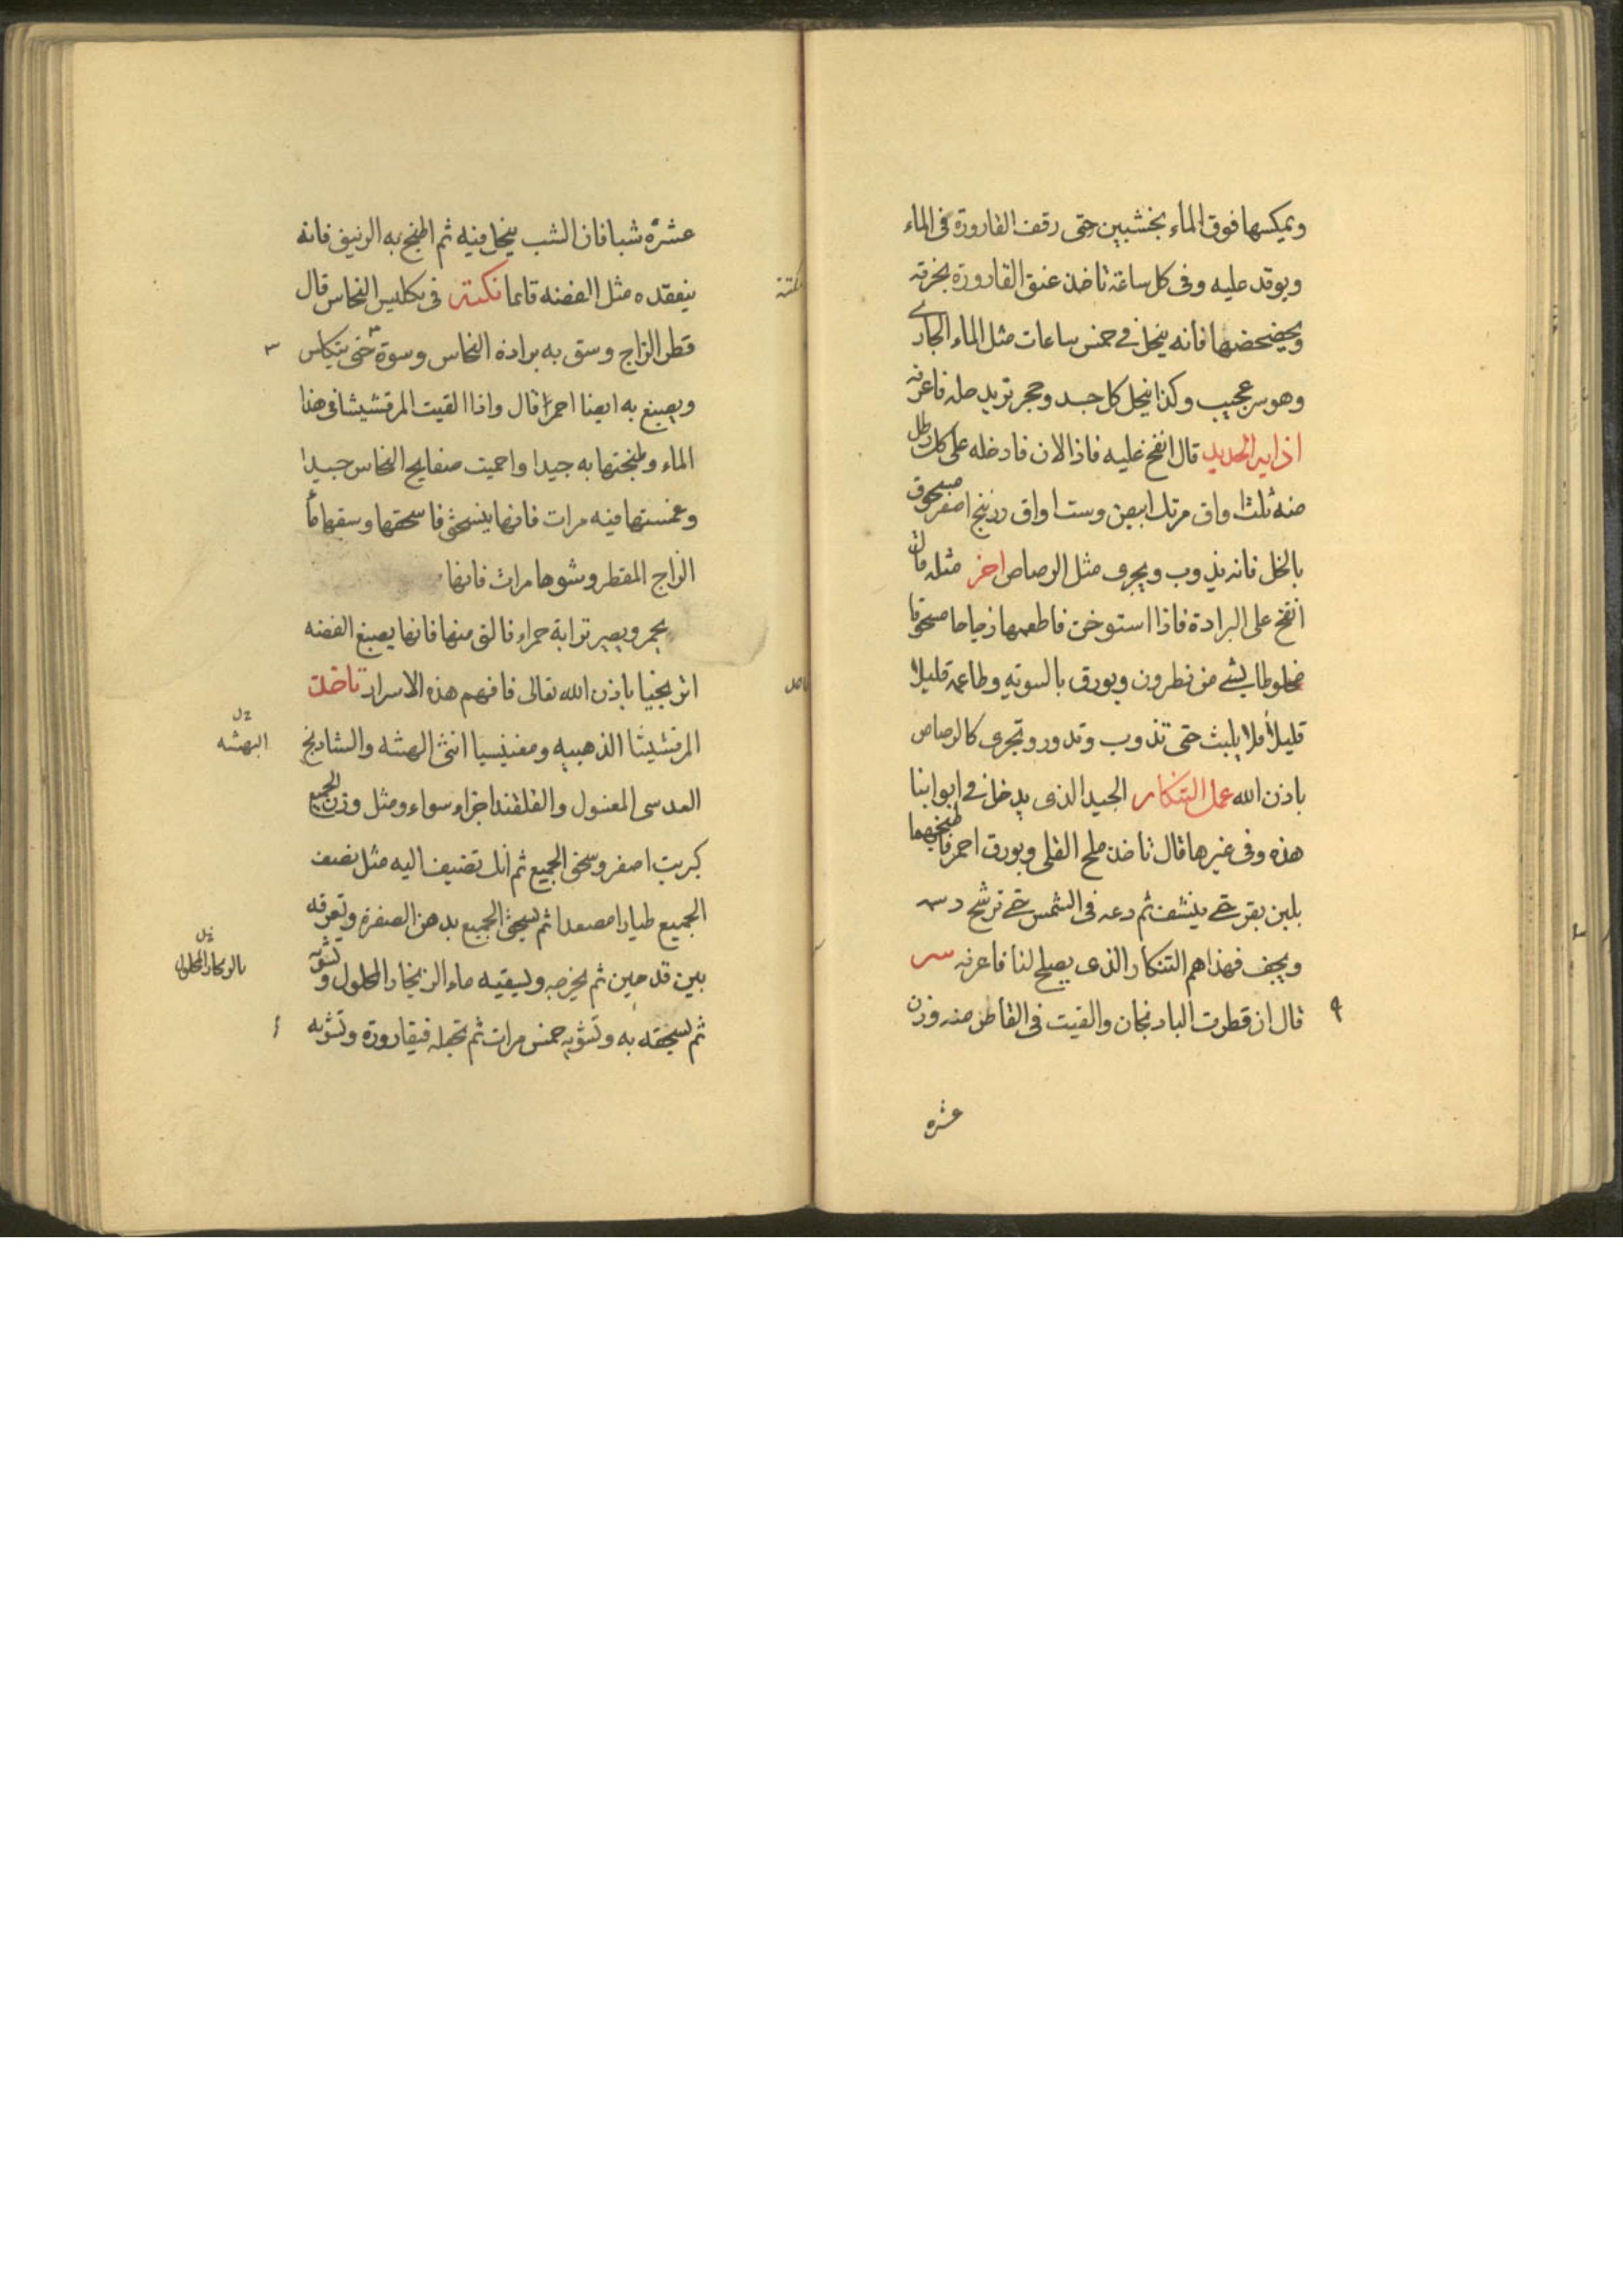 ويمكسها فوق الماء بخشبين حتى رقف القارورة فى الماء
ويوقد عليه وفى كل ساعة تاخذ عنق القارورة بخرقة
ويخضخضها فانه ينحل فى خمس ساعات مثل الماء الجارى
وهو سر عجيب وكذا ينحل كل جسد وحجر تريد حله فاعرفه
اذابة الحديد قال انفخ عليه فاذا لان فادخله على كل رطل
منه ثلث اواق مرتك ابيض وست اواق زرنيخ اصفر مسحوق
بالخل فانه يذوب ويجرى مثل الرصاص اخر مثله قال
انفخ على البرادة فاذا استوخن فاطعمها زجاجا مسحوقا
مخلوطا بشى من نطرون وبورق بالسوية وطاعمه قليلا
قليلا فلا يلبث حتى تذوب وتدور وتجرى كالرصاص
باذن الله عمل التنكار الجيد الذى يدخل فى ابوابنا
هذه وفى غيرها قال تاخذ ملح القلى وبورق احمر فاطبخهما
بلبن بقر حتى ينشف ثم دعه فى الشمس حتى ترشح دسمه
ويجف فهذا هم التنكار الذى يصلح لنا فاعرفه سر
قال ان قطرت الباد نجان والقيت فى القاطر منه وزن
عشره
عشرة شبا فان الشب ينحل فيه ثم اطبخ به الزئبق فانه
ينعقد ه مثل الفضه قائما نكتة فى تكليس النحاس قال
قطر الزاج وسق به برادة النحاس وسوة حتى يتكلس
ويصبغ به ايضا احمرا قال واذا القيت المرقشيشا فى هذا
الماء وطبختها به جيدا واحميت صفايح النحاس جيدا
وغمستها فيه مرات فانها ينسحق فاسحقها وسقها ماء
الزاج المقطر وشوها مرات فانها
يحمر ويصير ترابة حمراء فالق منها فانها يصبغ الفضه
باذن الله تعالى فافهم هذه الاسرار تاخذ
المرقشيثا الذهبيه ومغنيسيا انثى الهشه والشادنج
العدسى المغسول والقلقند اجزاء سواء ومثل وزن الجميع
كبريت اصفر وسحق الجميع ثم انك تضيف اليه مثل نصف
الجميع طيارا مصعدا ثم يسحق الجميع بدهن الصفرة وتعرقه
بين قدحين ثم يخرجه ويسقيه ماء الزنجار المحلول وتشويه
ثم يسحقه به وتشويه خمس مرات ثم تجعله فيقارورة وتشويه
نكتة
البهشه
بالزنجار المحلول